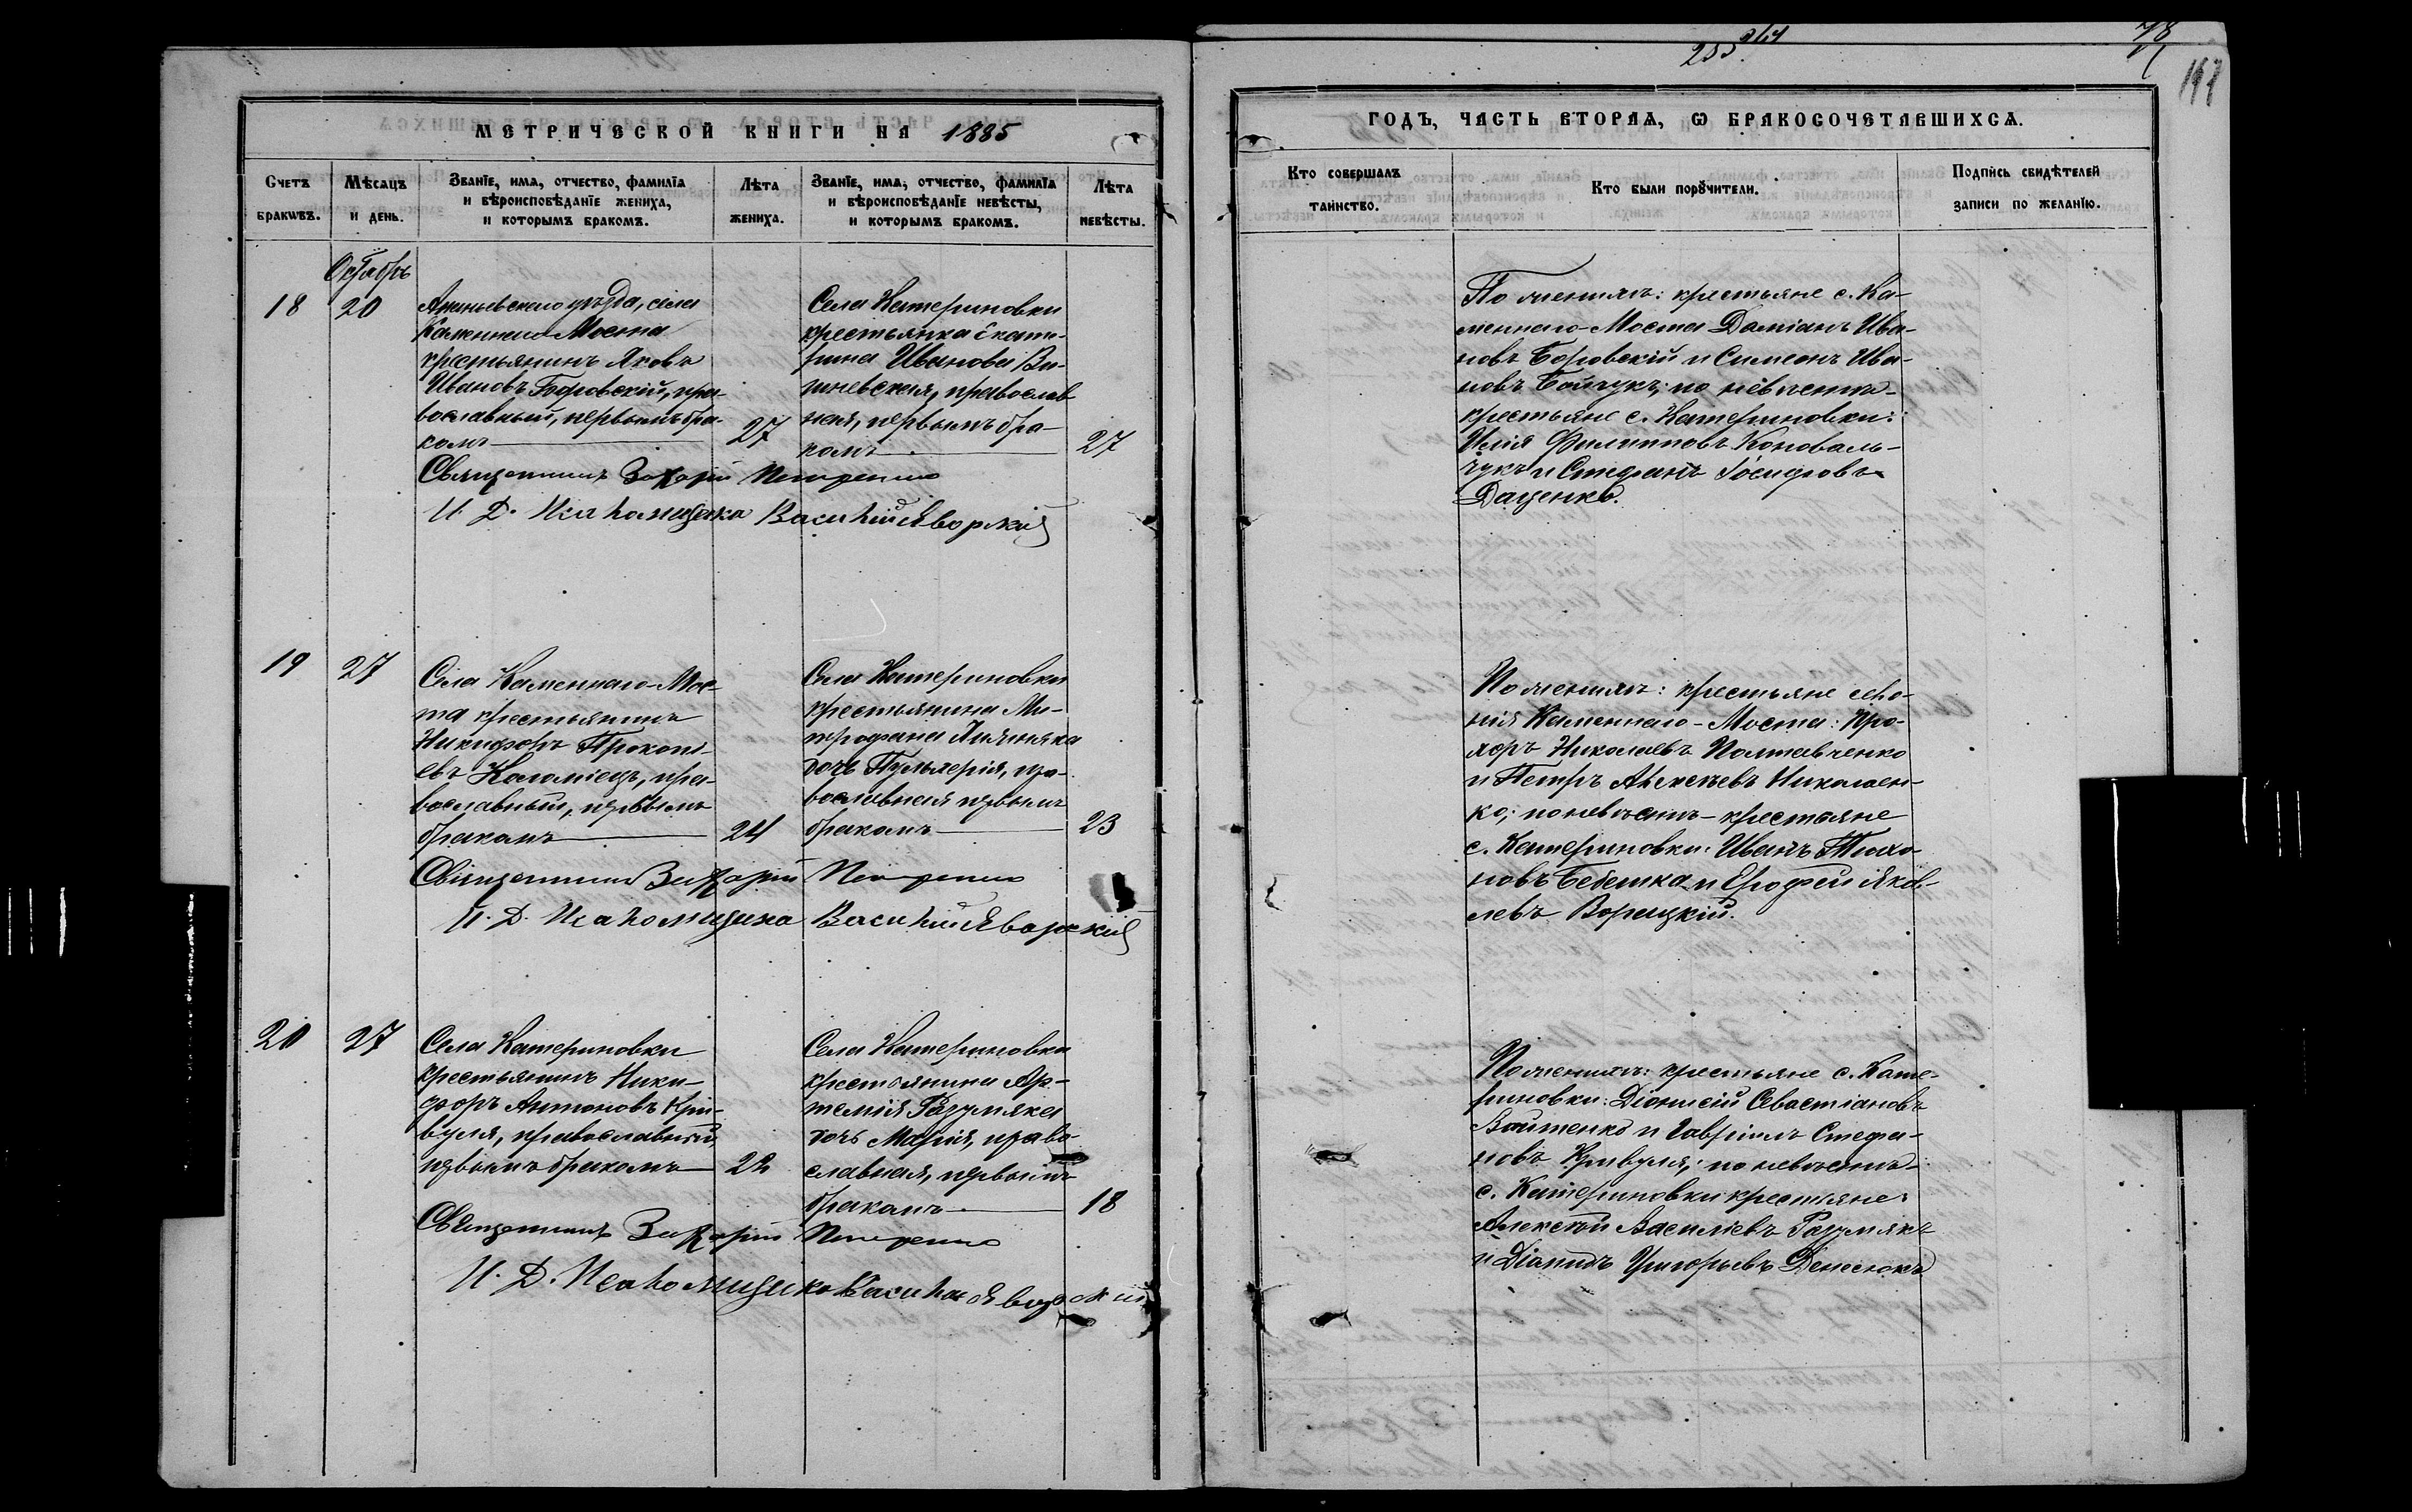 255
МЕТРИЧЕСКОЙ КНИГИ НА 1885
ГОДЪ, ЧАСТЬ ВТОРАѦ, Ѡ БРАКОСОЧЕТАВШИХСѦ.
Счетъ браківъ.
Мѣсяцъ и день.
Званїе, имѧ, отчество, фамилїа
и вѣроисповѣданїе жениха,
и которымъ бракомъ.
Лѣта жениха.
Званїе, имѧ, отчество, фамилїа
и вѣроисповѣданїе невѣсты,
и которымъ бракомъ.
Лѣта невѣсты.
Кто совершалъ таинство.
Кто были порꙋчители.
Подпись свидѣтелей
записи по желанїю.
Октябрь
18
20
Ананьевскаго уѣзда, села
Каменнаго Моста
крестьянинъ Яковъ
Ивановъ Боровскій, пра-
вославный, первымъ бра-
комъ
27
Села Катериновки
крестьянка Екате-
рина Иванова Ви-
шневская, православ
ная, первымъ бра-
комъ
27
Священникъ Захарій
И. Д. Псаломщика Василій Яворскій
По женихѣ: крестьяне с. Ка-
меннаго Моста Даміанъ Ива-
новъ Боровскій и Симеонъ Ива-
новъ Бойчукъ; по невѣстѣ-
крестьяне с. Катериновки:
Илія Филипповъ Коноваль-
чукъ и Стефанъ Іосифовъ
Даценко.
19
27
Села Каменнаго-Мос-
та крестьянинъ
Никифоръ Прокопі-
евъ Коломіецъ, пра-
вославный, первымъ
бракомъ
24
Села Катериновки
крестьянина Ми-
трофана
дочь Пульхерія, пра-
вославная первымъ
бракомъ
23
Священникъ Захарій
И. Д. Псаломщика Василій Яворскій
По женихѣ: крестьяне селе-
нія Каменнаго-Моста: Про-
хоръ Николаевъ Полтавченко
и Петръ Алексѣевъ Николаен-
ко; по невѣстѣ-крестьяне
с. Катериновки: Иванъ Тихо-
новъ Бебешка и Ерофей Яков-
левъ Ворецкій.
20
27
Села Катериновки
крестьянинъ Ники-
форъ Антоновъ Кри-
вуля, православный,
первымъ бракомъ
22
Села Катериновки
крестьянина Ар-
темія Разумняка
дочь Марія, право-
славная, первымъ
бракомъ
18
Священникъ Захарій
И. Д. Псаломщика Василій Яворскій
По женихѣ: крестьяне с. Кате-
риновки: Діонисій Севастіановъ
Войтенко и Гавріилъ Стефа-
новъ Кривуля; по невѣстѣ-
с. Катериновки крестьяне:
Алексѣй Василіевъ Разумнякъ
и Григорьевъ Денесюкъ